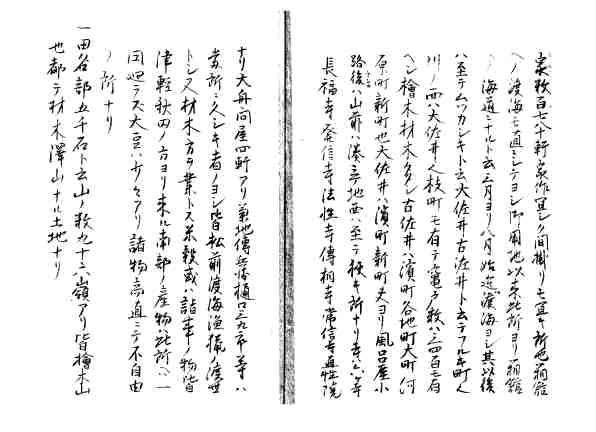 家数百七八十軒家作宜シク間掛リモ宜キ所也箱館
ヘノ渡海モ直ニシテヨシ御用地以来此所ヨリ箱館
ヘノ海道ニナルト云三月ヨリ八月始迄渡海ヨシ其以後
ハ至テムツカシキト云大佐井古佐井ト云テフル町ハ
川ノ西ハ大佐井ト枝町モ有テ竈戸数ハ三四百戸有
ヘシ檜木材木多シ古佐井ハ濱町各地町大町河
原町新町也大佐井ハ濱町新町又ヨリ風呂屋小
路後ハ山前ハ湊ニテ地西ハ至テ狭キ所ナリ寺六ケ寺
長福寺発信寺法性寺傳相寺常信寺直性院
ナリ大舟問屋四軒アリ菊地傳兵衛樋口三九市等ハ
當所ニ久シキ者ノヨシ皆松前渡海漁猟ノ渡世
トシ又材木方ヲ業トス米穀或ハ諸事ノ物皆
津軽秋田ノ方ヨリ来ル南部ノ産物ハ此所ヘハ一
円廻ラス大豆ハ少々アリ諸物高直ニシテ不自由
ノ所ナリ
一田名部五千石ト云山ノ数九十六嶺アリ皆檜木山
也都テ材木澤山ナル土地ナリ